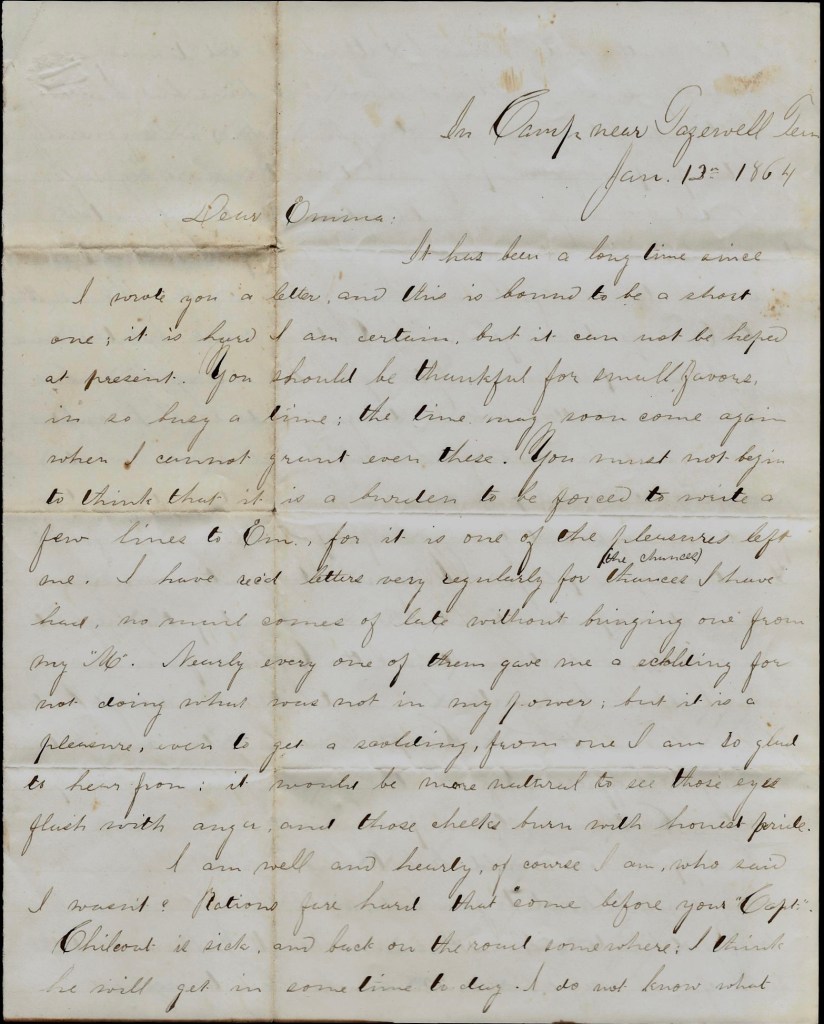 In Camp near Tazewell Ten
Jan. 13th 1864
Dear Emma:
It has been a long time since
I wrote you a letter, and this is bound to be a short
one; it is hard I am certain, but it can not be heped
at present. You should be thankful for small favors,
in so busy a time; the time may soon come again
when I cannot grant even these. You must not begin
to think that it is a burden to be forced to write a
few lines to Em., for it is one of the pleasures left
(the chances)
me. I have rec'd letters very regularly for chances I have
had, no mail comes of late without bringing one from
my "M". Nearly every one of them gave me a scolding for
not doing what was not in my power; but it is a
pleasure, even to get a scolding, from one I am so glad
to hear from; it would be more natural to see those eyes
flash with anger, and those cheeks burn with honest pride.
I am well and hearty, of course I am, who said
I wasn't? Rations fare hard that some before your "Capt."
Chilcout is sick, and back on the road somewhere; I think
he will get in sometime to day. I do not know what